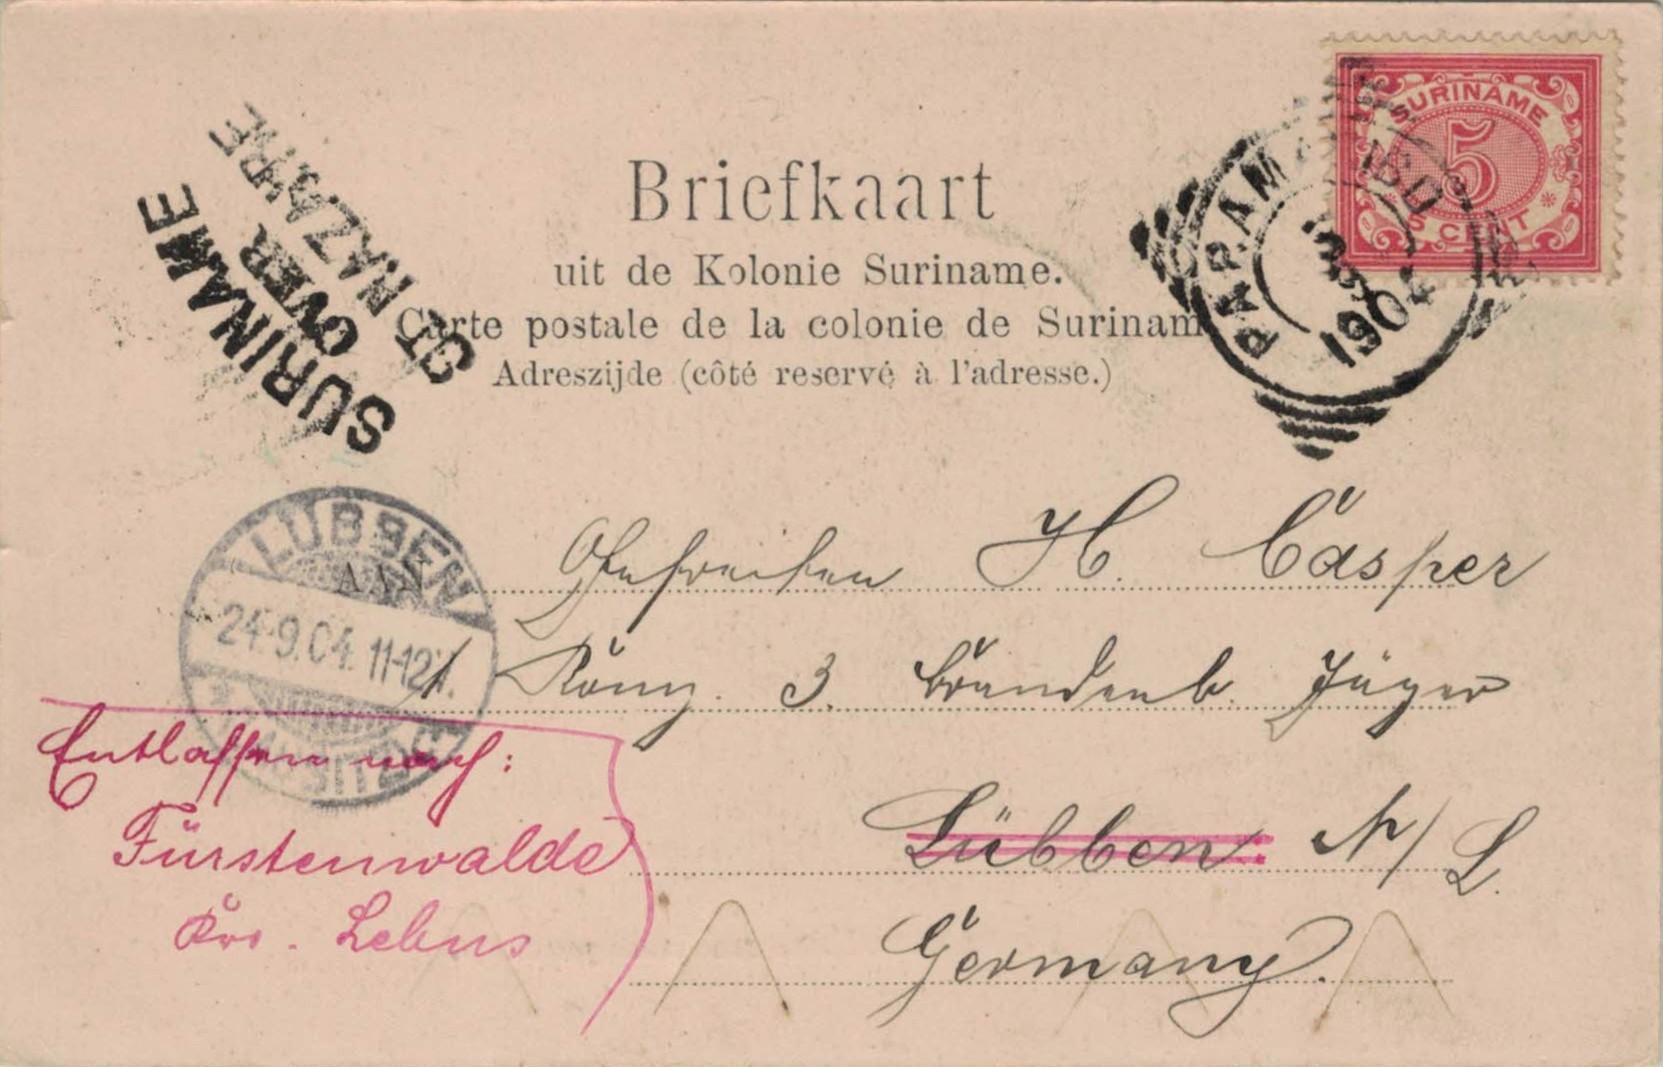 SURINAME
5
5 CENT
PARAMARIBO
1904
SURINAME
OVER
ST NAZAIRE
Briefkaart
uit de Kolonie Suriname.
Carte postale de la colonie de Surinam
Adreszijde (côté reservé à l'adresse.)
LÜBBEN
24.9.04. 11-12
AAN
Gefreiten H. Casper
3. Brandenb. Jäger
Lübben N/L.
Germany.
Entlassen nach:
Fürstenwalde
Lebus